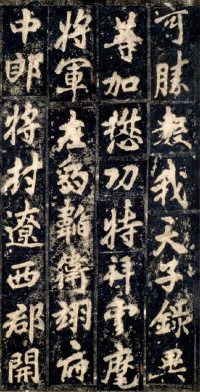 可勝數我天子錄異
等加懋功特拜雲麾
將軍左豹韜衛翊府
中郎將封遼西郡開